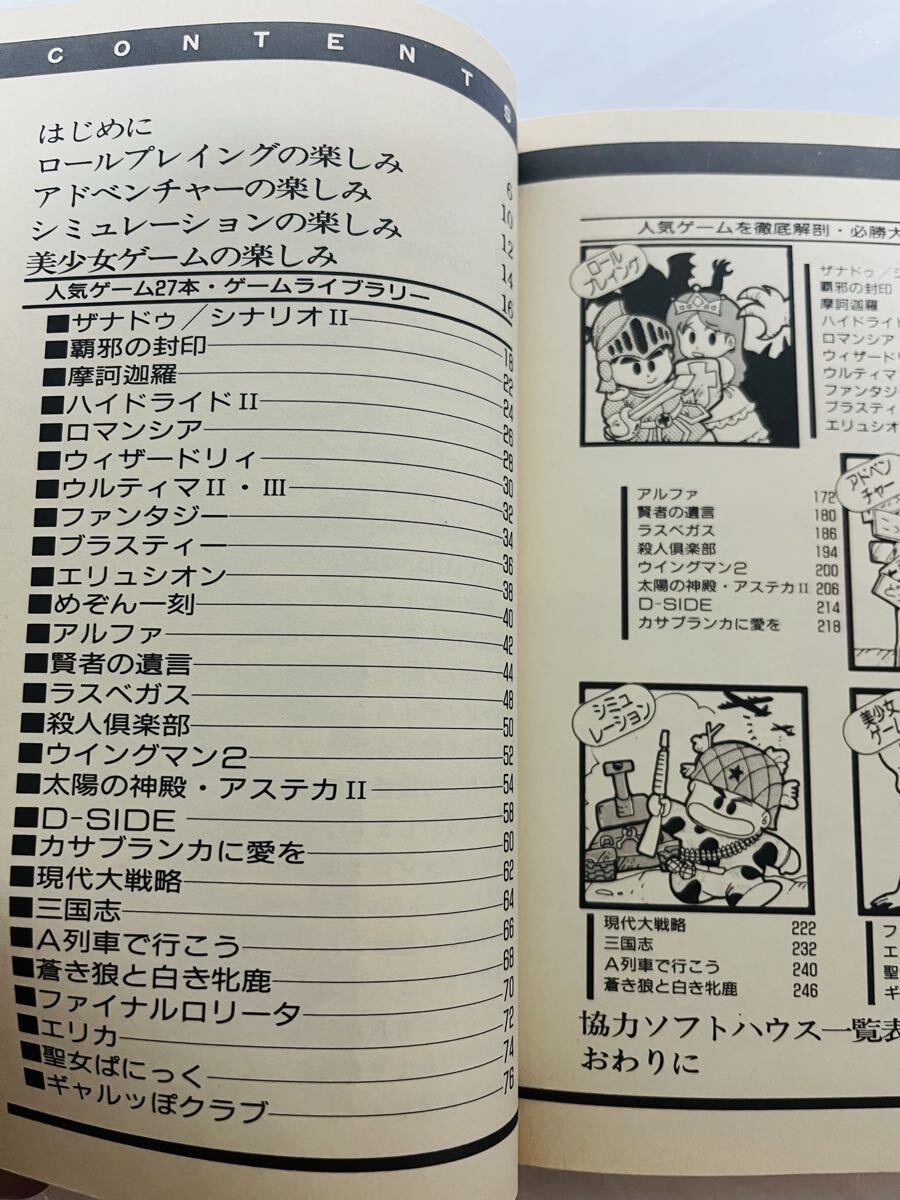 CONTENTS
はじめに 6
ロールプレイングの楽しみ 10
アドベンチャーの楽しみ 12
シミュレーションの楽しみ 14
美少女ゲームの楽しみ 16
人気ゲーム27本・ゲームライブラリー
■ザナドゥ/シナリオII 18
■覇邪の封印 22
■摩訶迦羅 24
■ハイドライドII 26
■ロマンシア 28
■ウィザードリィ 30
■ウルティマII・III 32
■ファンタジー 34
■ブラスティー 36
■エリュシオン 38
■めぞん一刻 40
■アルファ 42
■賢者の遺言 44
■ラスベガス 48
■殺人倶楽部 50
■ウイングマン2 52
■太陽の神殿・アステカII 54
■D-SIDE 58
■カサブランカに愛を 60
■現代大戦略 62
■三国志 64
■A列車で行こう 66
■蒼き狼と白き牝鹿 68
■ファイナルロリータ 70
■エリカ 72
■聖女ぱにっく 74
■ギャルッぽクラブ 76
人気ゲームを徹底解剖・必勝大
ロール
プレイング
ザナドゥ/シ
覇邪の封印
摩訶迦羅
ハイドライド
ロマンシア
ウィザードリ
ウルティマ
ファンタジー
ブラスティ
エリュシオ
アルファ 172
賢者の遺言 180
ラスベガス 186
殺人倶楽部 194
ウイングマン2 200
太陽の神殿・アステカII 206
D-SIDE 214
カサブランカに愛を 218
アドベン
チャー
シミュ
レーション
現代大戦略 222
三国志 232
A列車で行こう 240
蒼き狼と白き牝鹿 246
美少女
ゲーム
フ
エ
聖
ギ
協力ソフトハウス一覧表
おわりに